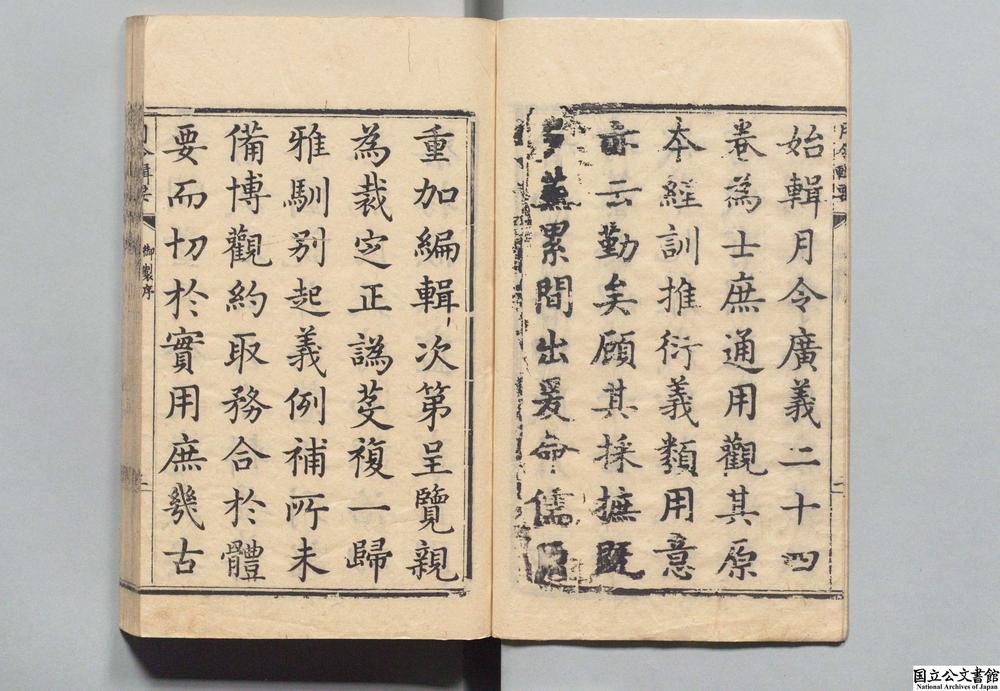 始輯月令廣義二十四
卷為士庶通用觀其原
本經訓推衍義類用意
亦云勤矣顧其採摭既
多蕪累間出爰命儒臣
月令輯要
重加編輯次第呈覽親
為裁定正譌芟複一歸
雅馴别起義例補所未
備博觀約取務合於體
要而切於實用庶幾古
月令輯要
御製序
二
国立公文書館
National Archives of Japan